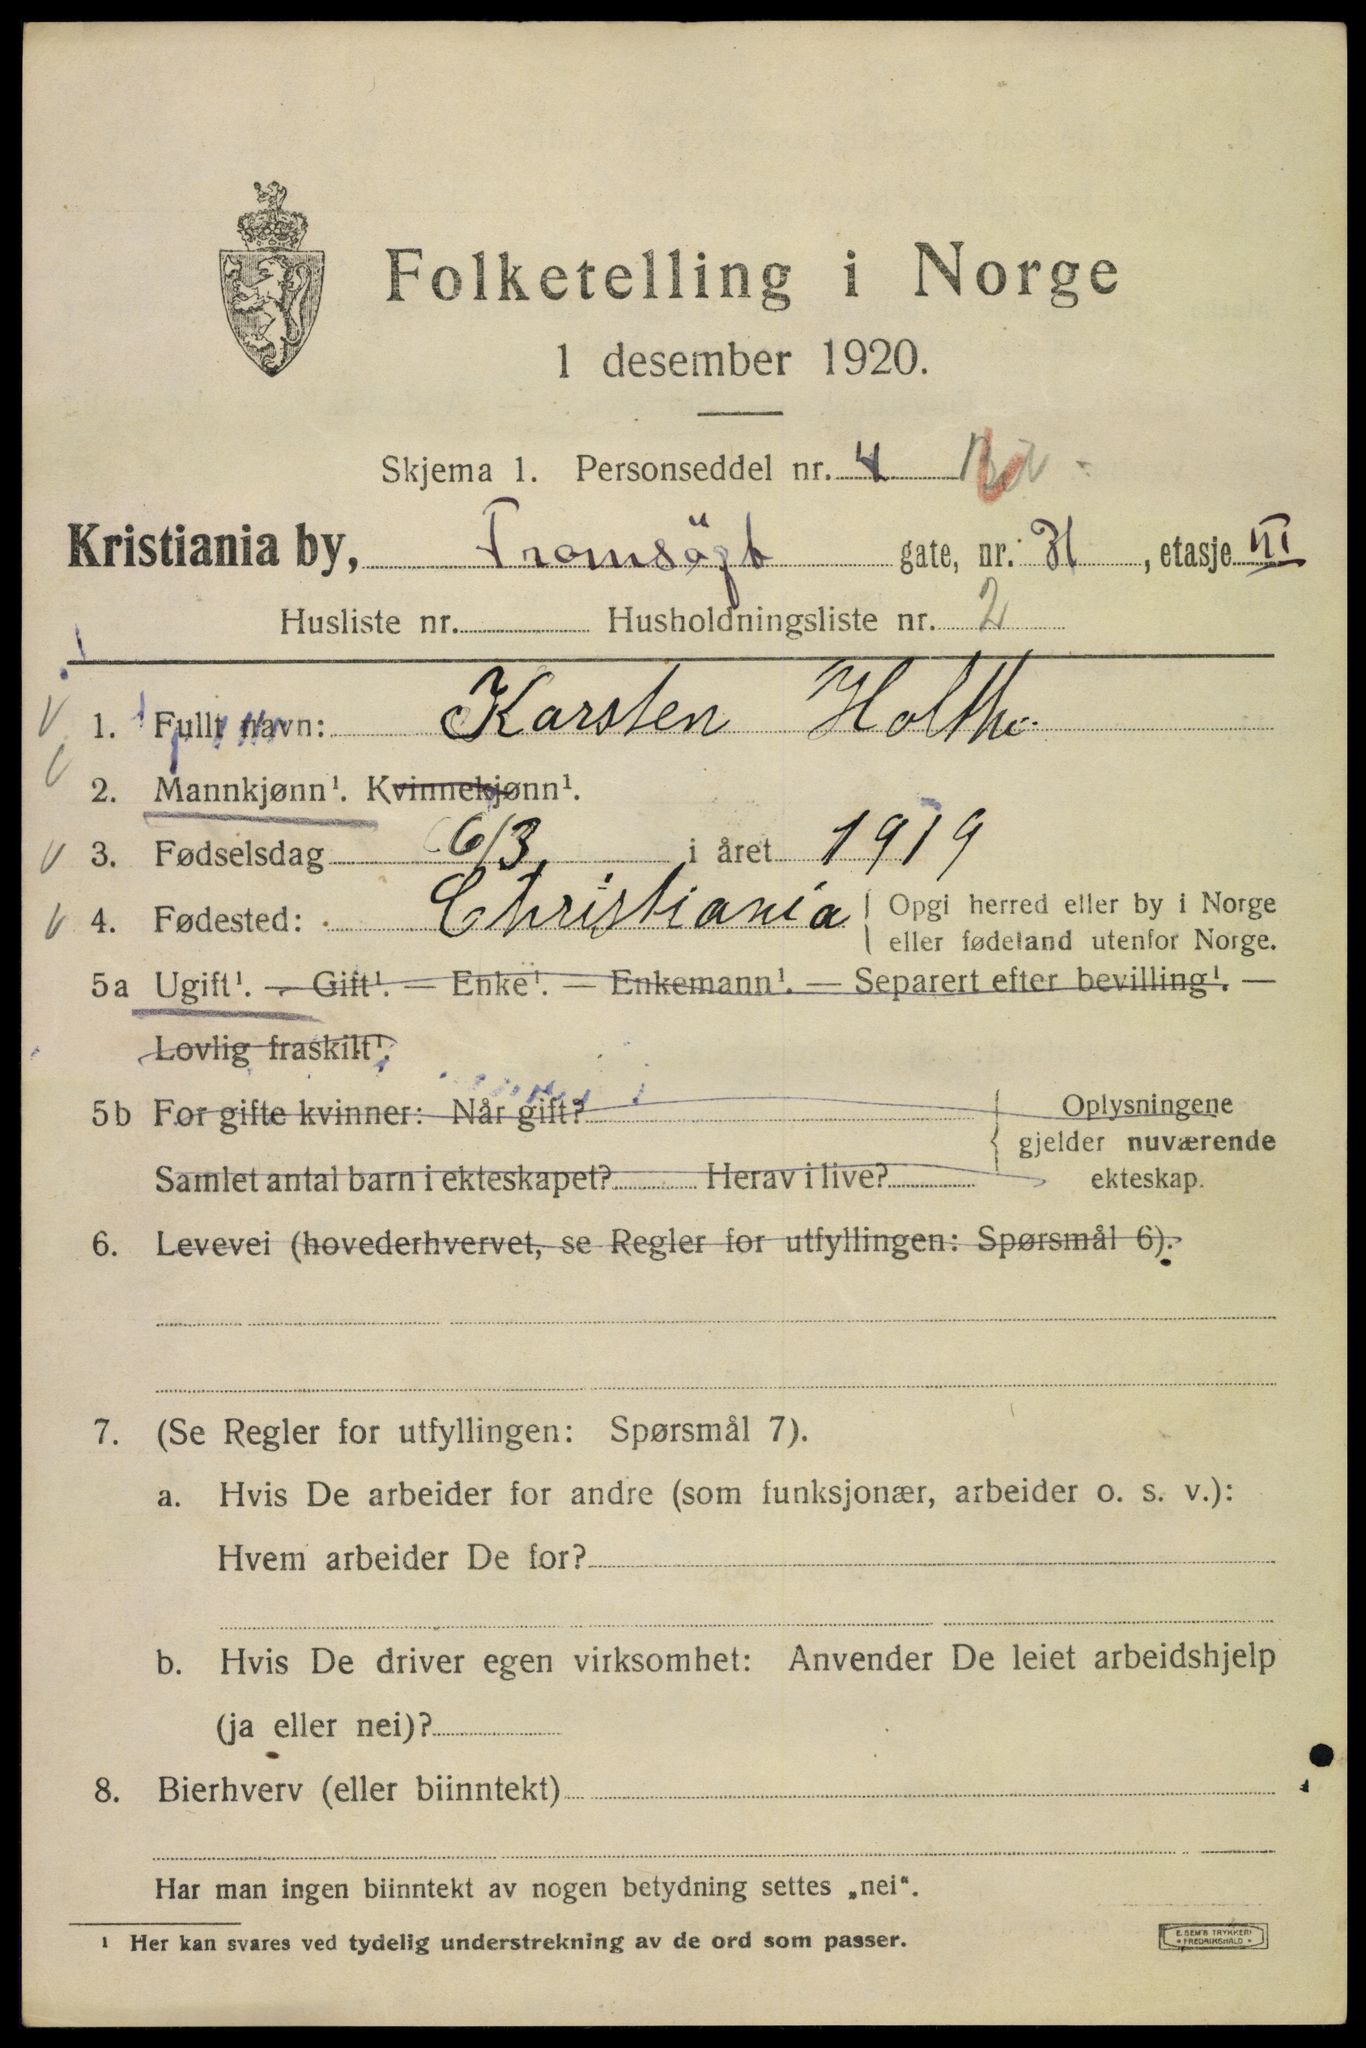 Folketelling i Norge
1 desember 1920.
Skjema 1. Personseddel nr. 4
Kristiania by, Tromsögt gate, nr. 31, etasje III
Husliste nr. Husholdningsliste nr. 2
1. Fullt navn: Karsten Holthe
2. Mannkjønn¹. Kvinnekjønn¹.
3. Fødselsdag 6/3 i året 1919
4. Fødested: Christiania Opgi herred eller by i Norge
eller fødeland utenfor Norge.
5a Ugift¹. — Gift¹. — Enke¹. — Enkemann¹. — Separert efter bevilling¹. —
Lovlig fraskilt¹.
5b For gifte kvinner: Når gift? Oplysningene
gjelder nuværende
Samlet antal barn i ekteskapet? Herav i live? ekteskap.
6. Levevei (hovederhvervet, se Regler for utfyllingen: Spørsmål 6).
7. (Se Regler for utfyllingen: Spørsmål 7).
a. Hvis De arbeider for andre (som funksjonær, arbeider o. s. v.):
Hvem arbeider De for?
b. Hvis De driver egen virksomhet: Anvender De leiet arbeidshjelp
(ja eller nei)?
8. Bierhverv (eller biinntekt)
Har man ingen biinntekt av nogen betydning settes „nei“.
¹ Her kan svares ved tydelig understrekning av de ord som passer.
E. SEM'S TRYKKERI
• FREDRIKSHALD •